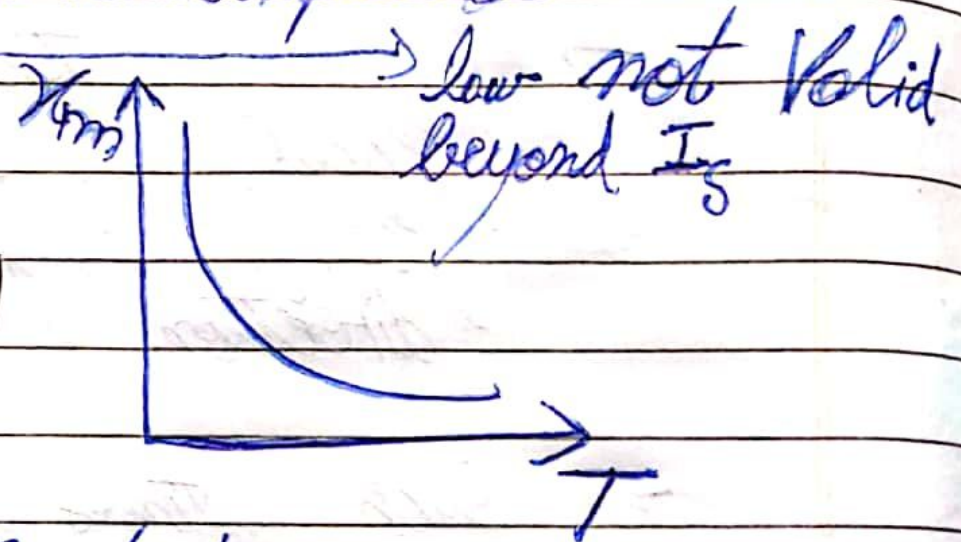 low not Valid
beyond I_s
χ_m
T